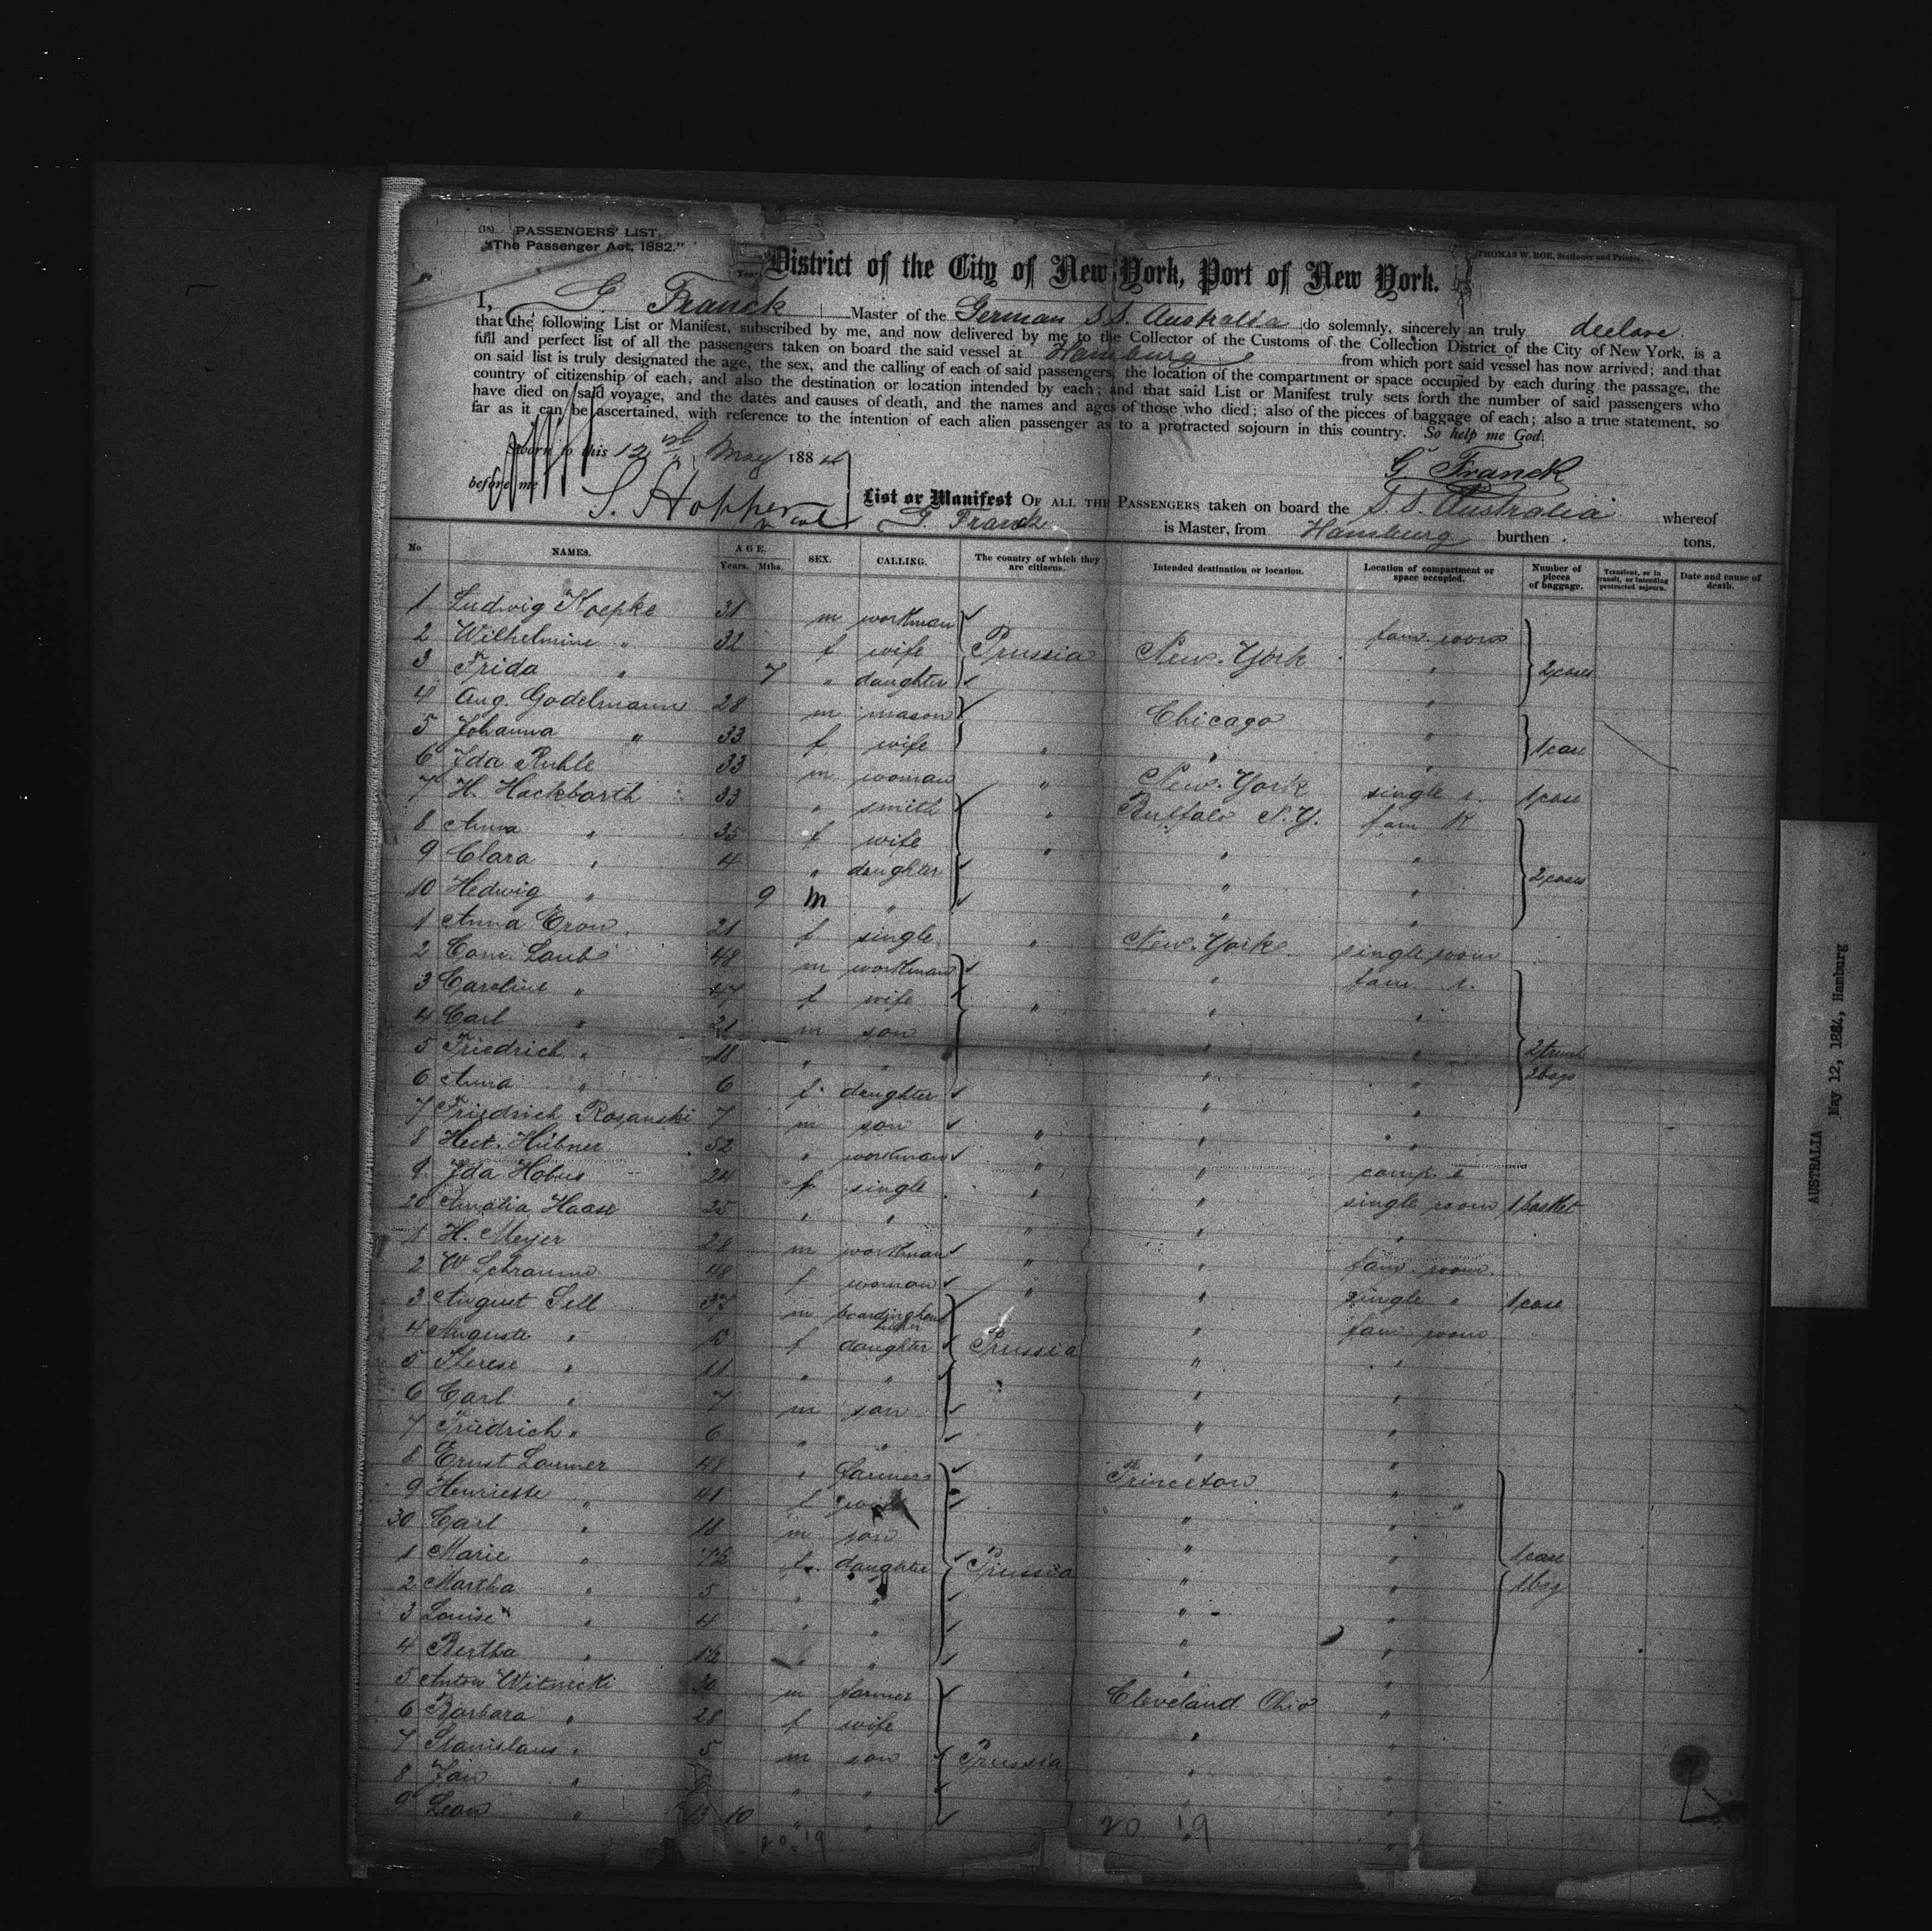 (18) PASSENGERS' LIST,
"The Passenger Act, 1882."
THOMAS W. ROE, Stationer and Printer,
District of the City of New York, Port of New York.
I, G. Franck Master of the German S.S. Australia do solemnly, sincerely an truly declare
that the following List or Manifest, subscribed by me, and now delivered by me to the Collector of the Customs of the Collection District of the City of New York, is a
full and perfect list of all the passengers taken on board the said vessel at Hamburg from which port said vessel has now arrived; and that
on said list is truly designated the age, the sex, and the calling of each of said passengers, the location of the compartment or space occupied by each during the passage, the
country of citizenship of each, and also the destination or location intended by each; and that said List or Manifest truly sets forth the number of said passengers who
have died on said voyage, and the dates and causes of death, and the names and ages of those who died; also of the pieces of baggage of each; also a true statement, so
far as it can be ascertained, with reference to the intention of each alien passenger as to a protracted sojourn in this country. So help me God.
Sworn to this 12 May 1884
G. Franck
before me S. Hopper
List or Manifest OF ALL THE PASSENGERS taken on board the S.S. Australia whereof
G. Franck is Master, from Hamburg burthen tons.
No NAMES. AGE. Years. Mths. SEX. CALLING. The country of which they are citizens. Intended destination or location. Location of compartment or space occupied. Number of pieces of baggage. Transient, or in transit, or intending protracted sojourn. Date and cause of death.
1 Ludwig Koepke 31 m workman
2 Wilhelmine " 32 f wife Prussia New-York fam. room
3 Frida " 7 " daughter " 2 cases
4 Aug. Godelmann 28 m mason Chicago "
5 Johanna " 33 f wife " " " 1 case
6 Ida Ruhle 33 m woman " New-York single r. 1 case
7 H. Hackbarth 33 " smith " Buffalo N.Y. fam R
8 Anna " 35 f wife " " "
9 Clara " 4 " daughter " " 2 cases
10 Hedwig " 9 m " " "
1 Anna Cron 21 f single " New-York single room
2 Laub 48 m workman " fam. r.
3 Caroline " 47 f wife " " "
4 Carl " 21 m son " "
5 Friedrich " " " " " 2 trunk
6 Anna " 6 f. daughter " " 2 bags
7 Friedrich Rosanski 7 m son " " "
8 Hübner 52 " workman " "
9 Ida Hobus 24 f single " "
20 Amalia Haase 25 " " " " single room 1 basket
1 H. Meyer 28 m workman " " fam. room
2 W Schramm 48 f woman " " single " 1 case
3 August Sell 37 m " fam room
4 Auguste " f daughter Prussia " "
5 Therese " 11 " " " "
6 Carl " 7 m son " "
7 Friedrich " 6 " " " "
8 Ernst Laumer 48 " farmer Princeton "
9 Henriette " 41 f wife " "
30 Carl " 18 m son " "
1 Marie " f. daughter Prussia " " 1 case
2 Martha " 5 " " " " 1 bag
3 Louise " 4 " " " "
4 Bertha " " " "
5 Anton Witnecki 30 m farmer Cleveland Ohio "
6 Barbara " 28 f wife " "
7 Stanislaus " 5 m son Prussia " "
8 Jan " " " "
9 Leon " 10 " " " "
20 19
20 19
AUSTRALIA
May 12, 1884, Hamburg